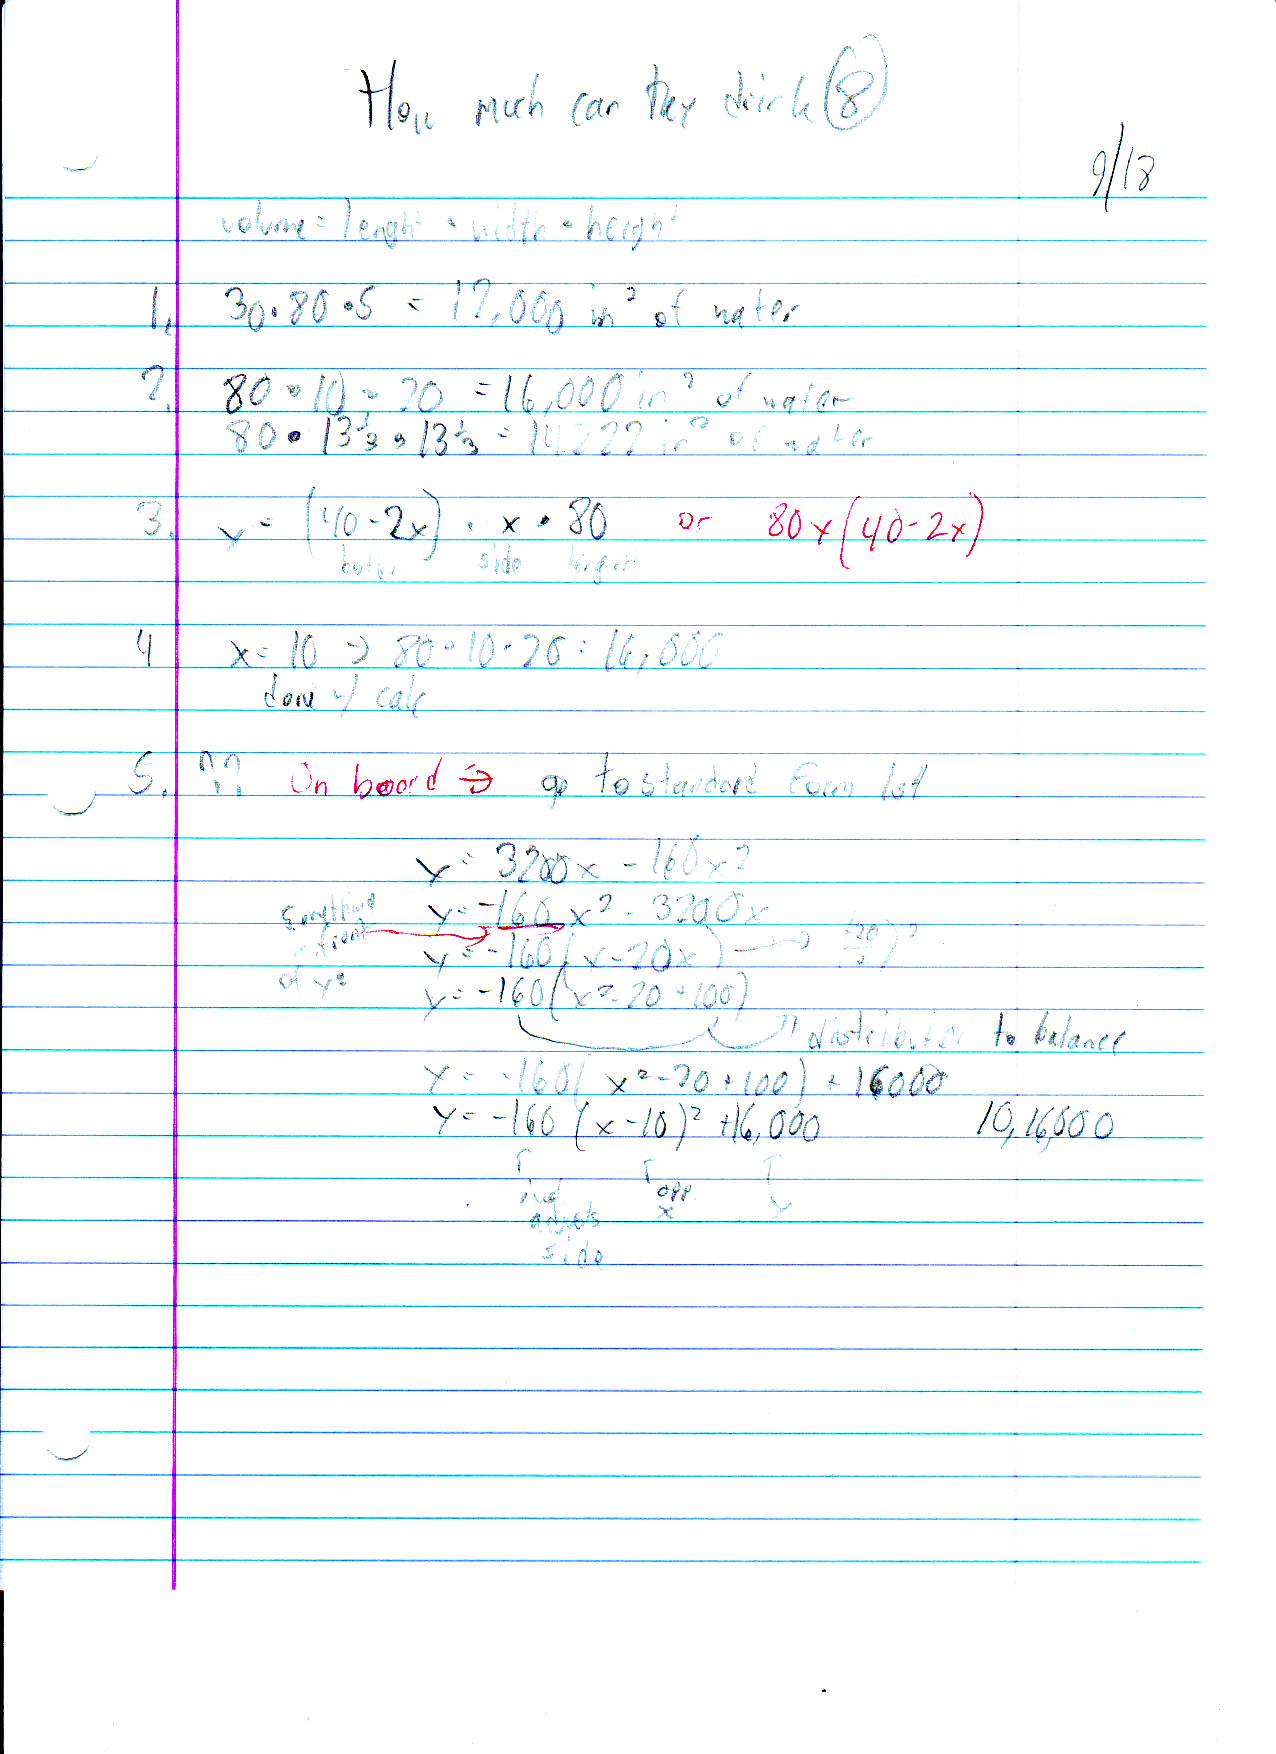 How much can they drink 8
9/18
volume = lenght • width • height
1. 30 • 80 • 5 = 12,000 in³ of water
2. 80 • 10 • 20 = 16,000 in³ of water
80 • 13⅓ • 13⅓ = 14222 in³ of water
3. y = (40-2x) • x • 80 or 80x(40-2x)
side
4 x = 10 → 80 • 10 • 20 = 16,000
done w/ calc
5. ?? On board → go to standard form 1st
y = 3200x - 160x²
y = -160x² - 3200x
Everything in front of x²
y = -160(x - 20x)
y = -160(x² - 20 + 100)
distribute to balance
y = -160(x² - 20 + 100) + 16000
y = -160(x - 10)² + 16,000 10, 16,000
opp x y
side